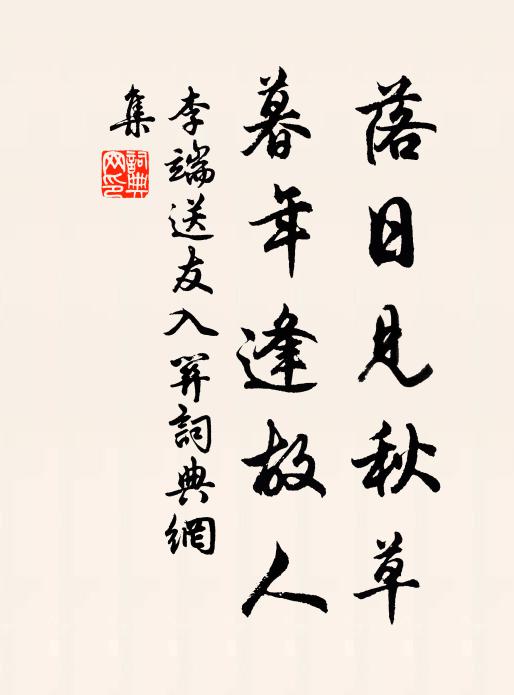 落日見秋草
暮年逢故人
李端送友入關詞典網
集
詞典網印